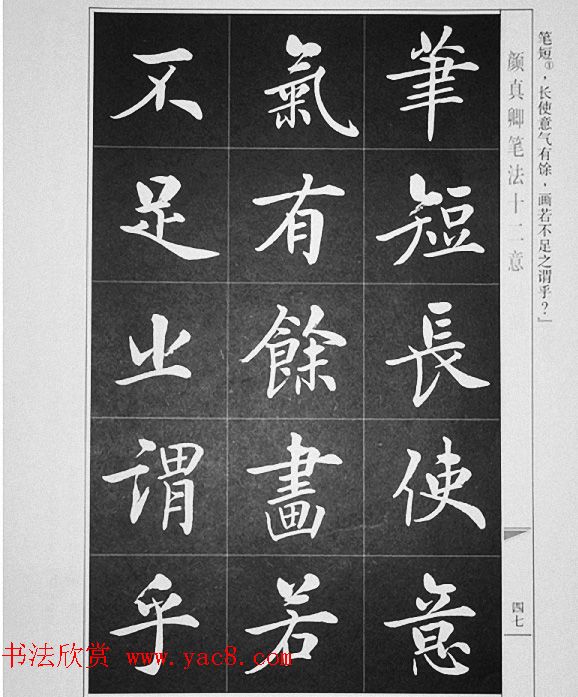 笔短①，长使意气有馀，画若不足之谓乎？」
颜真卿笔法十二意
四七
筆短長使意
氣有餘畫若
不足之謂乎
书法欣赏 www.yac8.com